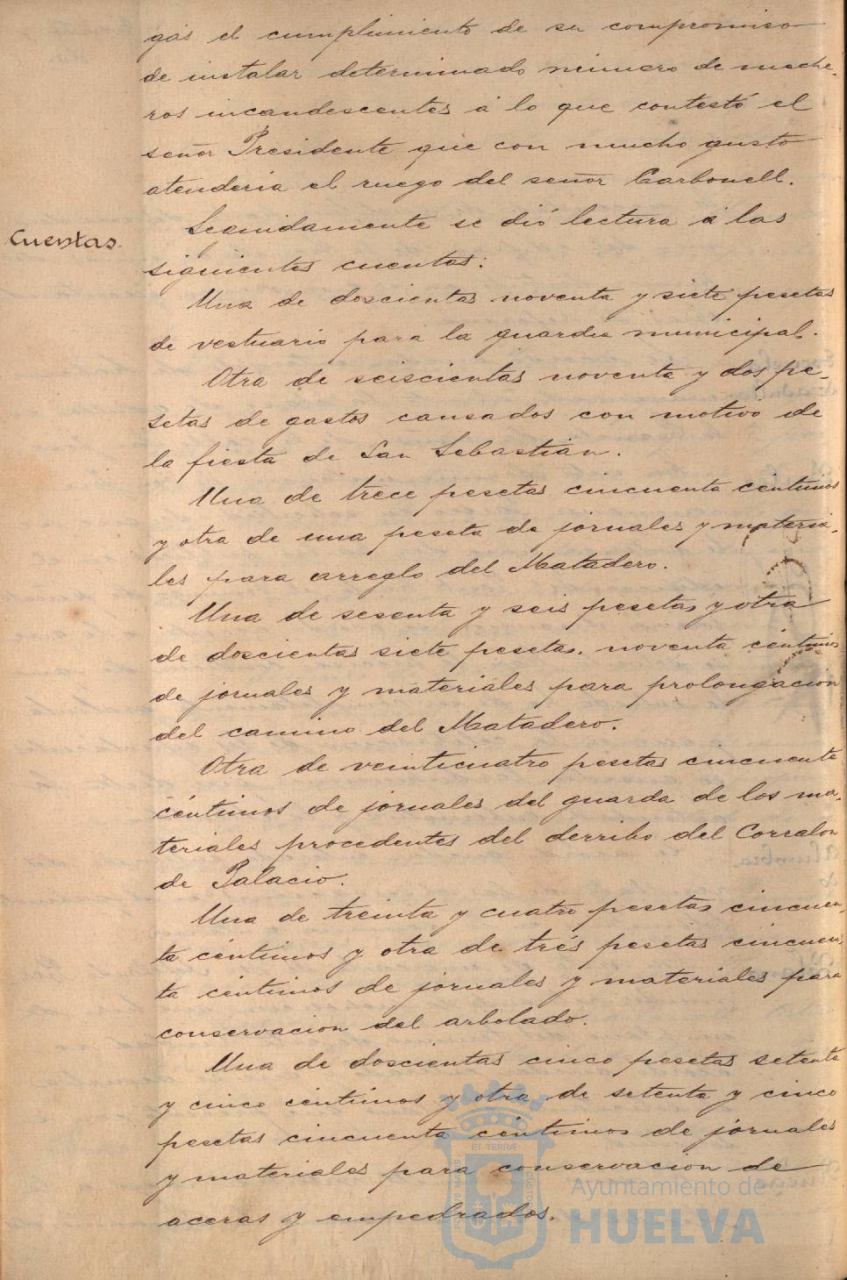 gás el cumplimiento de su compromiso
de instalar determinado número de meche-
ros incandescentes á lo que contestó el
señor Presidente que con mucho gusto
atenderia el ruego del señor Carbonell.
Cuentas.
Seguidamente se dió lectura á las
siguientes cuentas:
Una de doscientas noventa y siete pesetas
de vestuario para la guardia municipal.
Otra de seiscientas noventa y dos pe-
setas de gastos causados con motivo de
la fiesta de San Sebastián.
Una de trece pesetas cincuenta céntimos
y otra de una peseta de jornales y materia-
les para arreglo del Matadero.
Una de sesenta y seis pesetas y otra
de doscientas siete pesetas noventa céntimos
de jornales y materiales para prolongación
del camino del Matadero.
Otra de veinticuatro pesetas cincuenta
céntimos de jornales del guarda de los ma-
teriales procedentes del derribo del Corralon
de Palacio.
Una de treinta y cuatro pesetas cincuen-
ta céntimos y otra de tres pesetas cincuen-
ta céntimos de jornales y materiales para
conservacion del arbolado.
Una de doscientas cinco pesetas setenta
y cinco centimos y otra de setenta y cinco
pesetas cincuenta céntimos de jornales
y materiales para conservacion de
aceras y empedrados.
Ayuntamiento de
HUELVA